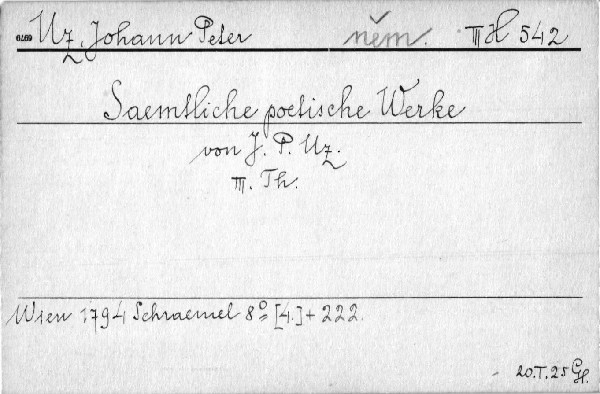 Uz, Johann Peter něm. III H 542
Saemtliche poetische Werke
von J. P. Uz.
III. Th.
Wien 1794 Schraemel 8° [4.] + 222.
20.I.25